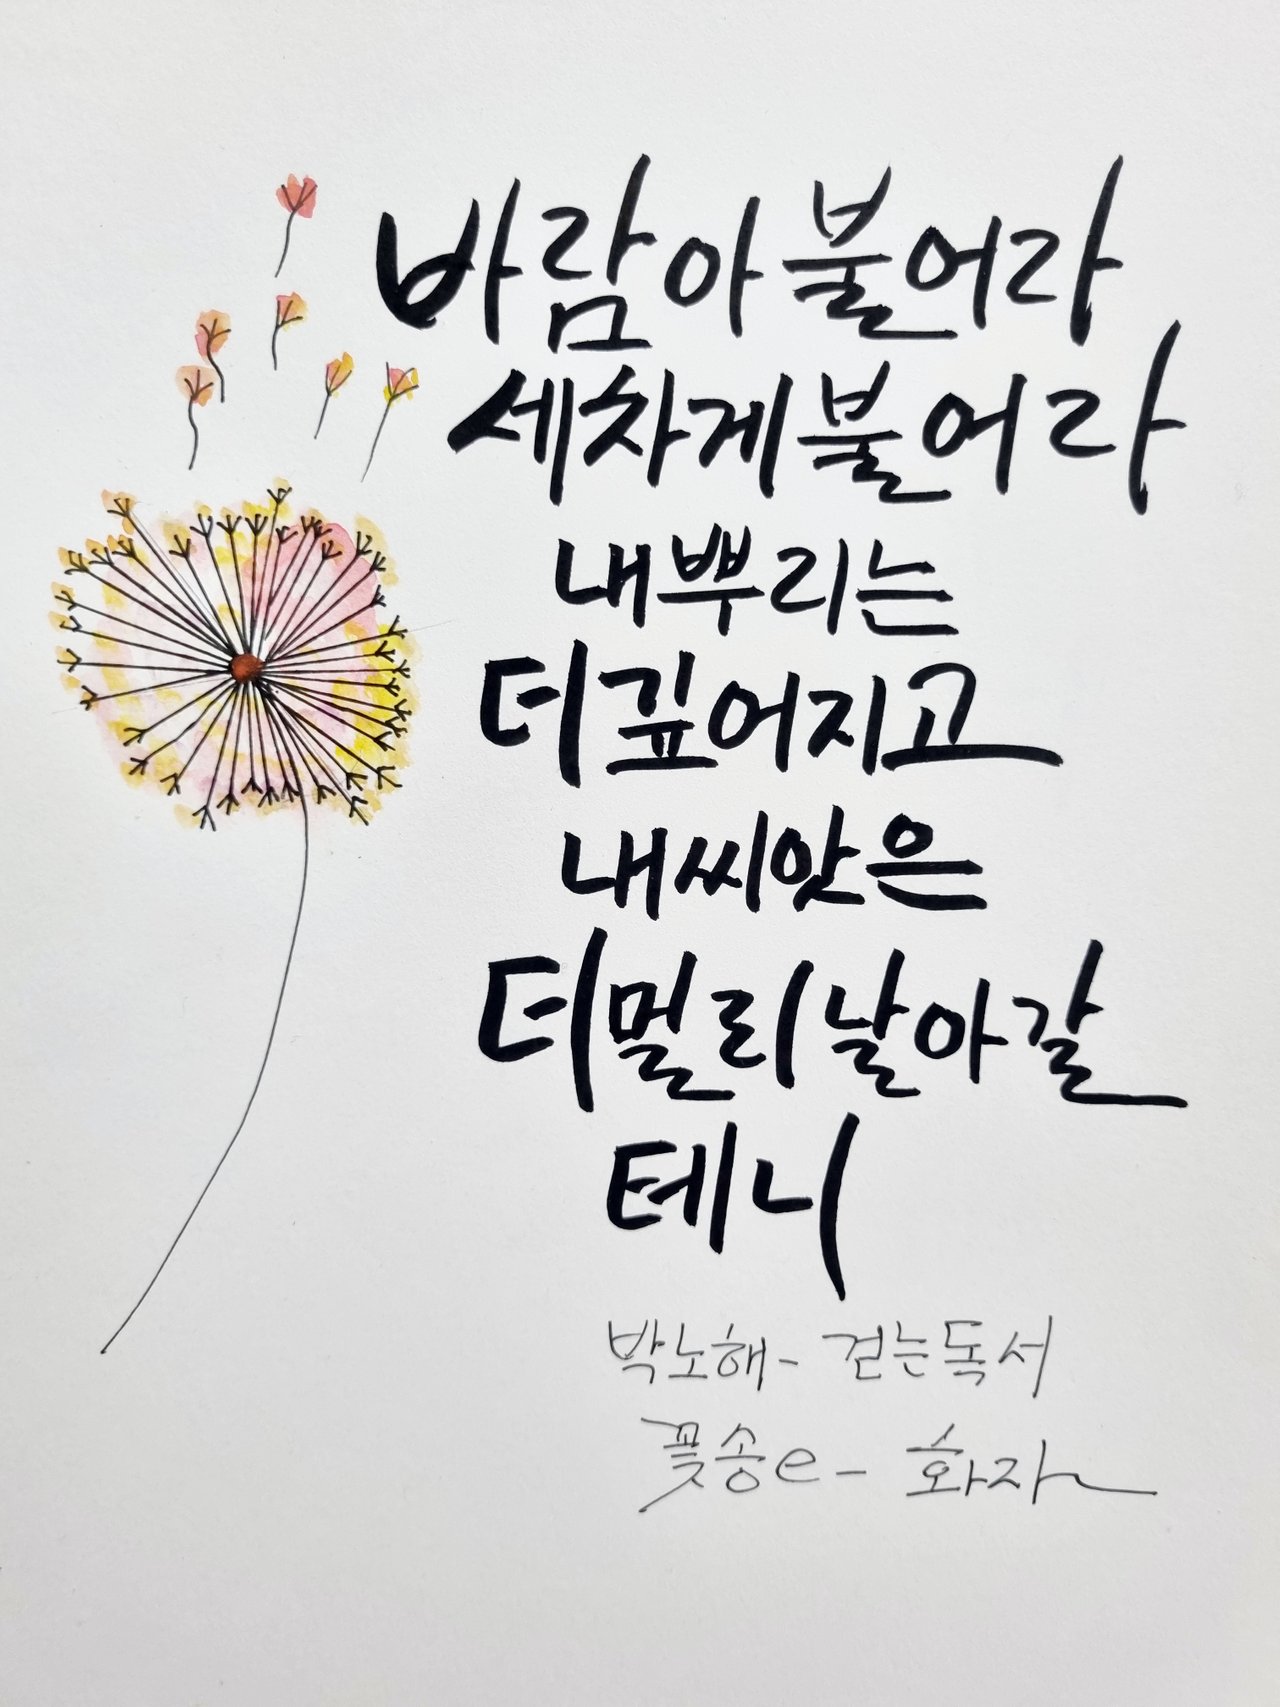 바람아 불어라
세차게 불어라
내 뿌리는
더 깊어지고
내 씨앗은
더 멀리 날아갈
테니
박노해 - 걷는 독서
꽃송e - 화자